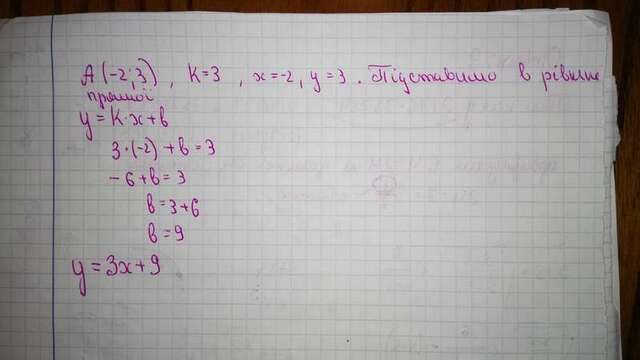 A(-2;3), K=3, x=-2, y=3. Підставимо в рівняння
прямої
y=K·x+в
3·(-2)+в=3
-6+в=3
в=3+6
в=9
y=3x+9